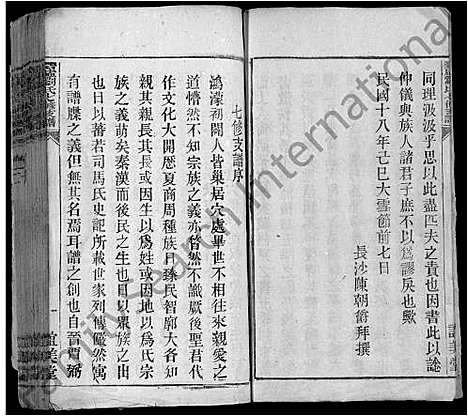 同理汲汲乎思以此盡匹夫之責也因書此以諗
仲儀與族人諸君子庶不以爲謬戾也歟
民國十八年己巳大雪節前七日
長沙陳朝爵拜撰
七修支譜序
鴻濛初闢人皆巢居穴處畢世不相往來親愛之
道懵然不知宗族之義亦當然不識厥後聖君代
作文化大開歷夏商周種族日繁民智漸大各知
親其親長其長或因生以爲姓或因地以爲氏宗
族之義萌矣秦漢而後民之生也日以眾族之由
也日以蕃若司馬氏史記所載世家列傳儼然寓
有譜牒之義但無其名焉耳譜之創也自晉賈
familysearch international